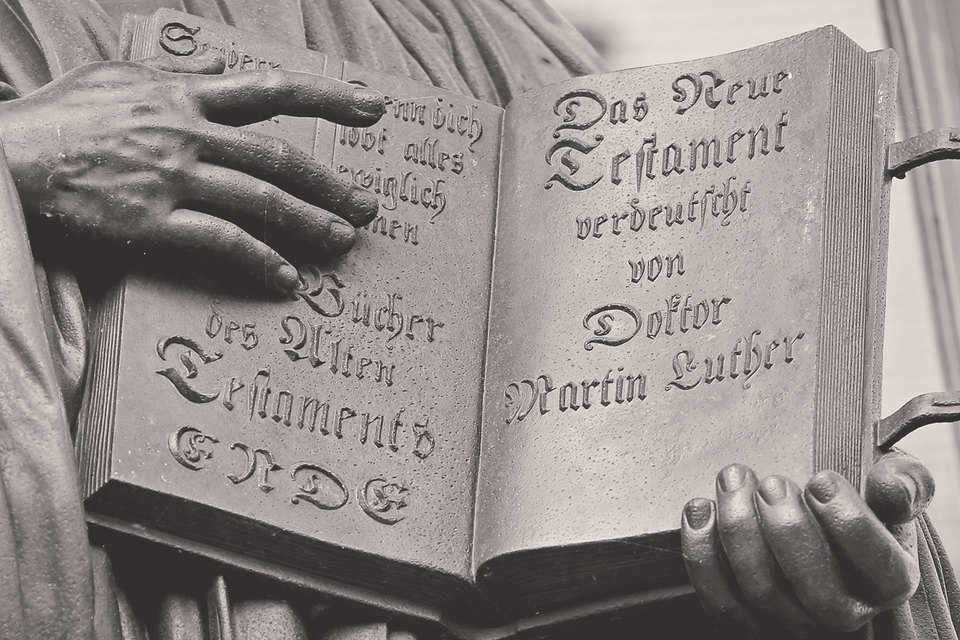 enn dich
lobt alles
ewiglich
men
Bücher
des Alten
Testaments
ENDE
Das Neue
Testament
verdeutscht
von
Doktor
Martin Luther